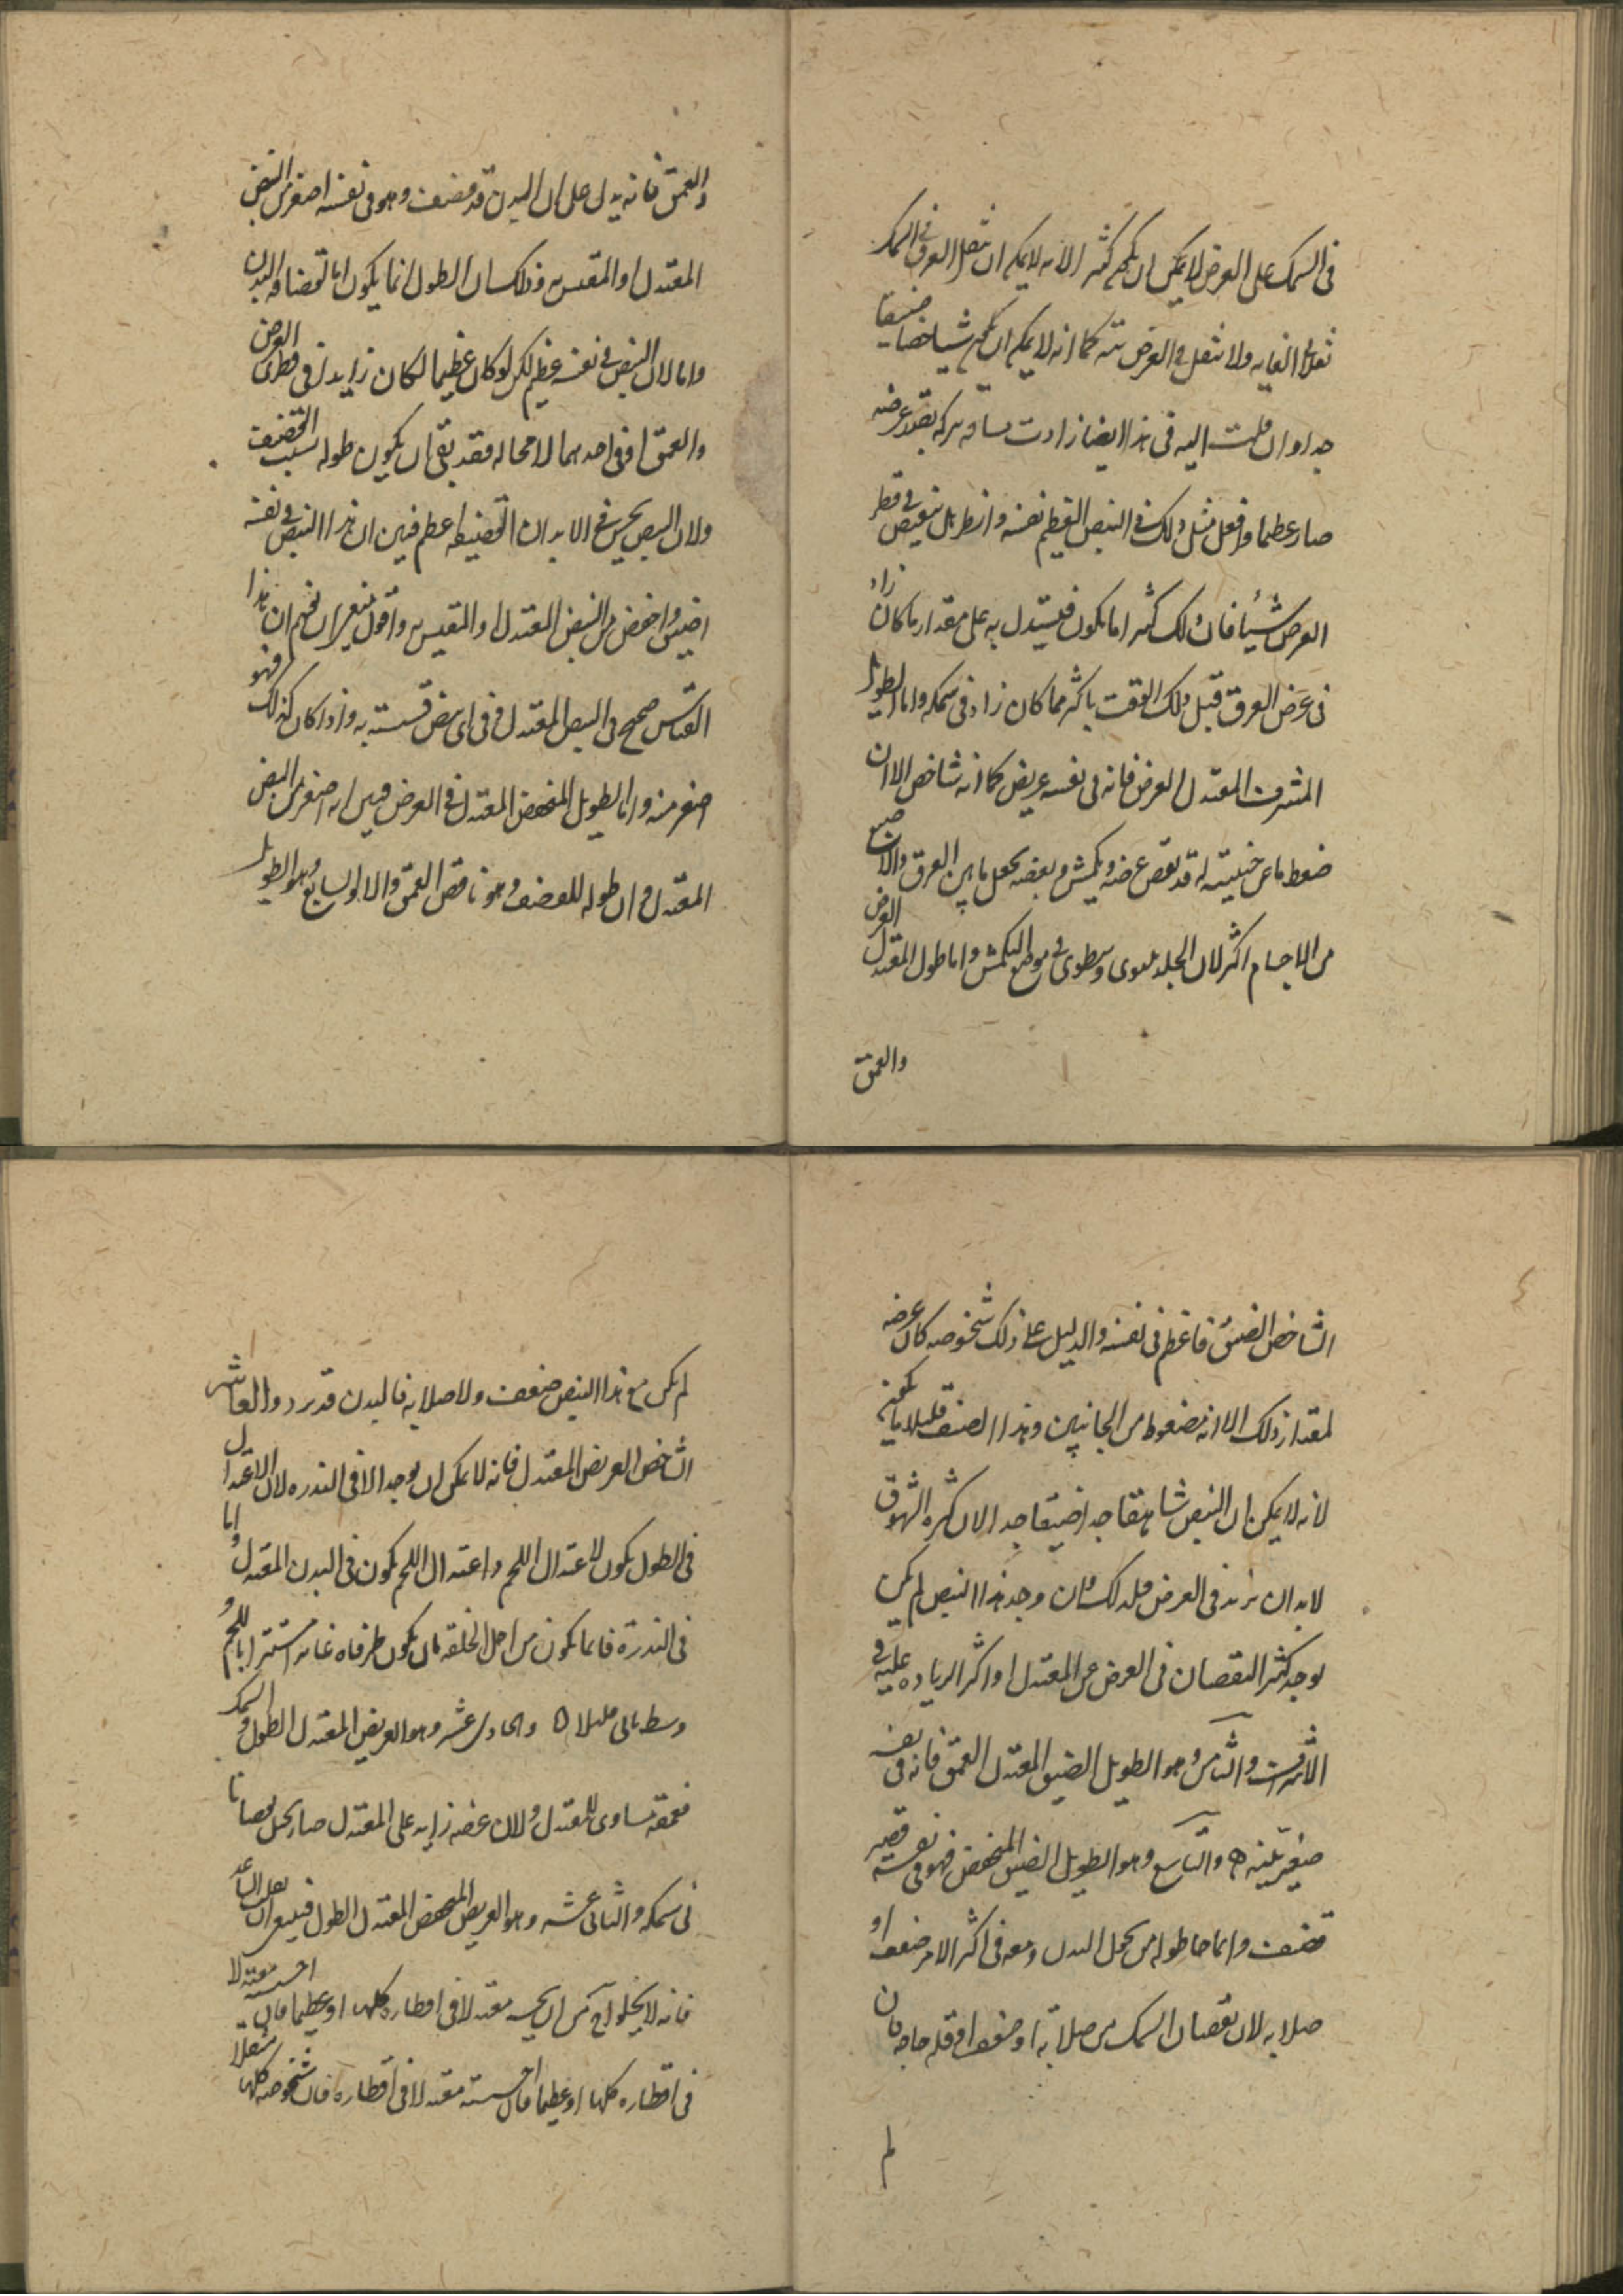 في السمك على العرض لا يمكن ان يكون كثيرا لانه لا يمكن ان يثقل العرق في السمك
ثقلا في الغايه ولا يثقل في العرض بته كما انه لا يمكن ان يكون شاخصا ضيقا
جدا وان قلت اليه في هذا ايضا زادت مسافه حركه بقدر عرضه
صار عظيما وافعل مثل ذلك في النبض العظيم نفسه وانظر هل ينقبض في قطر
العرض شيئا فان ذلك كثيرا ما يكون فليستدل به على مقدار ما كان زاد
في عرض العرق قبل ذلك الوقت باكثر مما كان زاد في سمكه واما الطويل
المشرف المعتدل العرض فانه في نفسه عريض كما انه شاخص الا ان
ضغط ما عن جنبيه له قد نقص عرضه ويكمش بعضه بجعل ما بين العرق والاصبع
من الاجسام اكثر لان الجلد يلتوى وينطوى في موضع التكمش واما طول المعتدل العرض
والعمق
والعمق فانه يدل على ان البدن قد قضف وهو في نفسه اصغر من النبض
المعتدل او المقيس به وذلك ان الطول انما يكون اما لقضافه البدن
واما لان النبض في نفسه عظيم لكن لو كان عظيما لكان زايدا في قطرى العرض
والعمق او في احدهما لا محاله فقد بقى ان يكون طوله بسبب القضف
ولان النبض يحس في الابدان القضيفه اعظم فبين ان هذا النبض في نفسه
اضيق واخفض من النبض المعتدل او المقيس به واقول ينبغى ان تفهم ان هذا
القياس صحيح في النبض المعتدل وفي اى نبض قسته به واذا كان كذلك فهو
اصغر منه واما الطويل المنخفض المعتدل في العرض فبين انه اصغر من النبض
المعتدل وان طوله للقضف وهو ناقص العمق والاول السابع وهو الطويل
الشاخص الضيق فاعظم في نفسه والدليل على ذلك شخوصه كان عرضه
لمقدار ذلك الا انه مضغوط من الجانبين وهذا الصنف قليلا ما يكون
لانه لا يمكن ان النبض شاهقا جدا ضيقا جدا لان كثره الشهوق
لا بد ان يزيد في العرض فلذلك ان وجد هذا النبض لم يكن
يوجد كثير النقصان في العرض عن المعتدل او اكثر الزياده عليه في
الاشراف والثامن وهو الطويل الضيق المعتدل العمق فانه في نفسه
صغير بتيه والتاسع وهو الطويل الضيق المنخفض فهو في نفسه قصير
قضيف وانما جا طوله من نحول البدن ومعه في اكثر الامر ضعف او
صلابه لان نقصان السمك من صلابه او ضعف او قله حاجه فان
لم
لم يكن مع هذا النبض ضعف ولا صلابه فالبدن قد برد والعاشر
الشاخص العريض المعتدل فانه لا يمكن ان يوجد الا في الندره لان الاعتدال
في الطول يكون لاعتدال اللحم واعتدال اللحم يكون في البدن المعتدل واما
في الندرة فانما يكون من اجل الخلقه بان يكون طرفاه غابر استترا باللحم و
وسط باقى قليلا والحادى عشر وهو العريض المعتدل الطول والسمك
فعمقه مساوى للمعتدل ولان عرضه زايد على المعتدل صار يحس نقصانا
في سمكه والثانى عشر وهو العريض المنخفض المعتدل الطول
فانه لا يخلو اى من ان يحسه معتدلا في اقطاره كلها او عظيما فان احسسته معتدلا
في اقطاره كلها او عظيما فان احسسته معتدلا في اقطاره فان شخوصه كلها